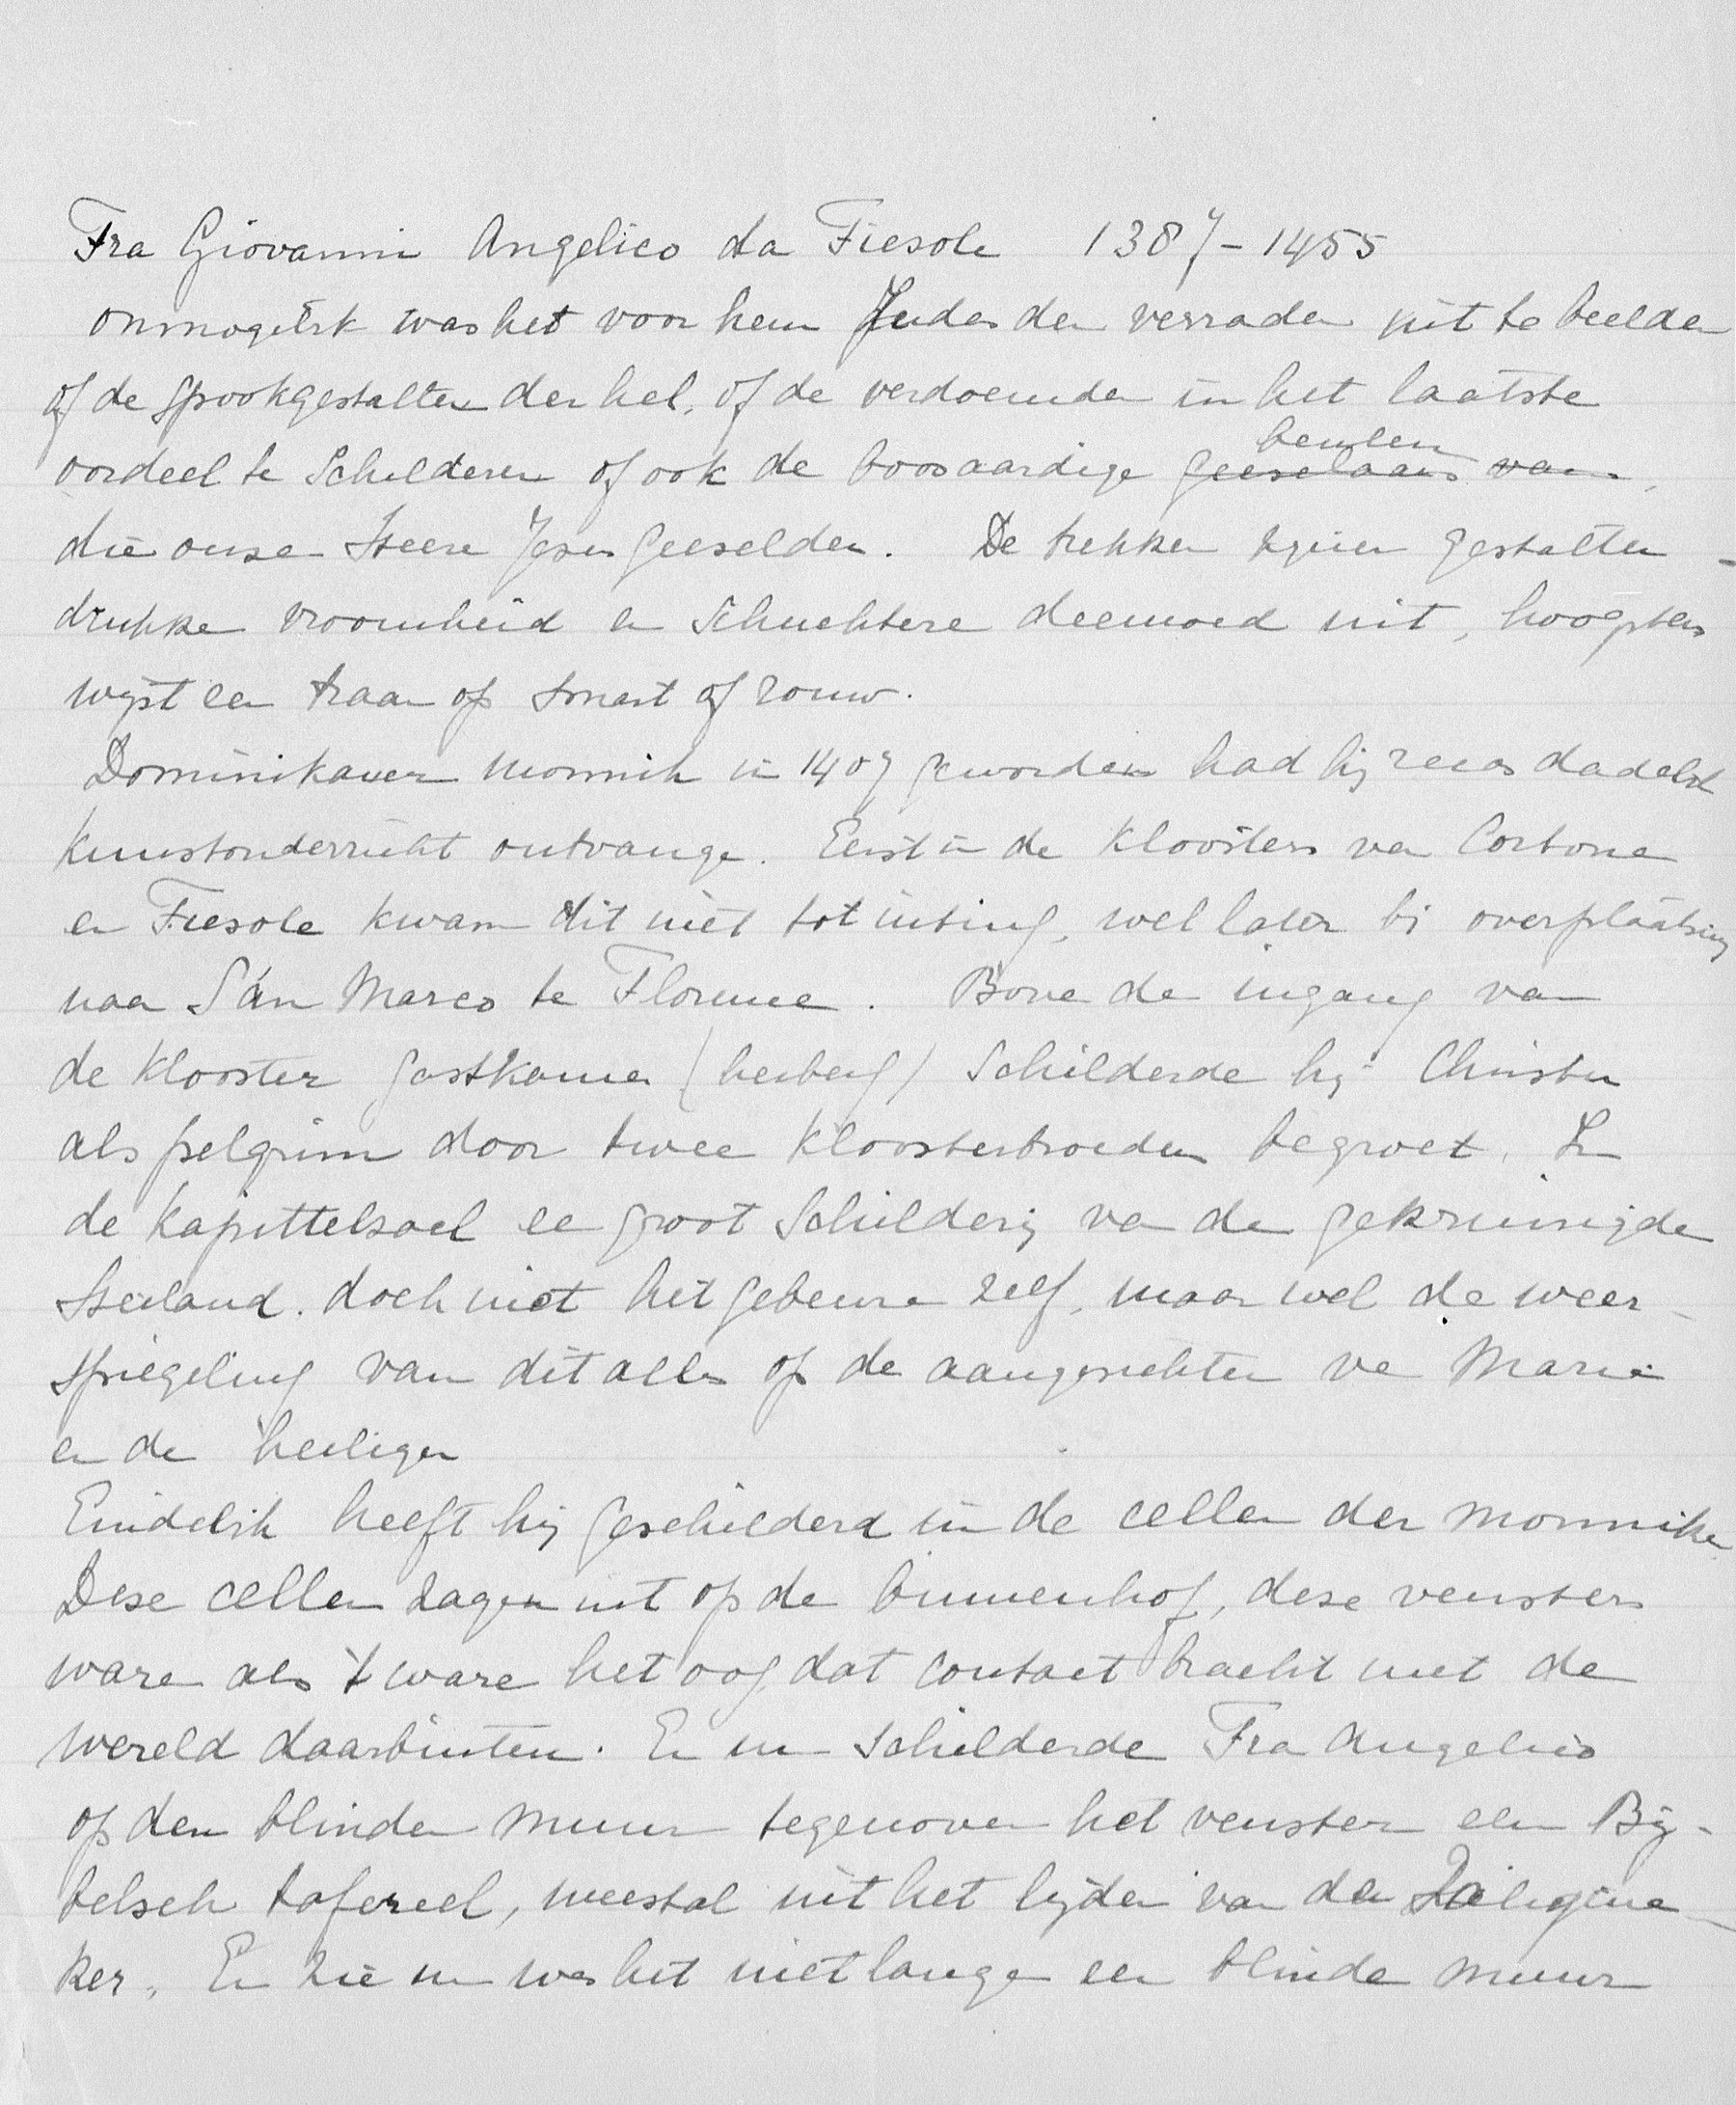 Fra Giovanni Angelico da Fiesole 1387-1455
onmogelijk was het voor hem Judas den verrader uit te beelden
of de spookgestalten der hel, of de verdoemden in het laatste
oordeel te schilderen of ook de boosaardige geeselaars van beulen,
die onzen Heere Jezus geeselden. De trekken zijner gestalten
drukken vroomheid en schuchtere deemoed uit, hoogstens
wijst een traan op smart of rouw.
Dominikaner monnik in 1407 geworden had hij reeds dadelijk
kunstonderricht ontvangen. Eerst in de kloosters van Cortona
en Fiesole kwam dit niet tot uiting, wel later bij overplaatsing
naar San Marco te Florence. Boven de ingang van
de klooster gastkamer (herberg) schilderde hij Christus
als pelgrim door twee kloosterbroeders begroet. In
de kapittelzaal een groot schilderij van de gekruisigde
Heiland. doch niet het gebeuren zelf, maar wel de weer-
spiegeling van dit alles op de aangezichten van Maria
en de heiligen
Eindelijk heeft hij geschilderd in de cellen der monniken
Deze cellen zagen uit op de binnenhof, deze vensters
waren als 't ware het oog, dat contact bracht met de
wereld daarbuiten. En nu schilderde Fra Angelico
op den blinden muur tegenover het venster een Bij-
belsch tafereel, meestal uit het lijden van den Zaligma-
ker. En zie nu was het niet langer een blinde muur